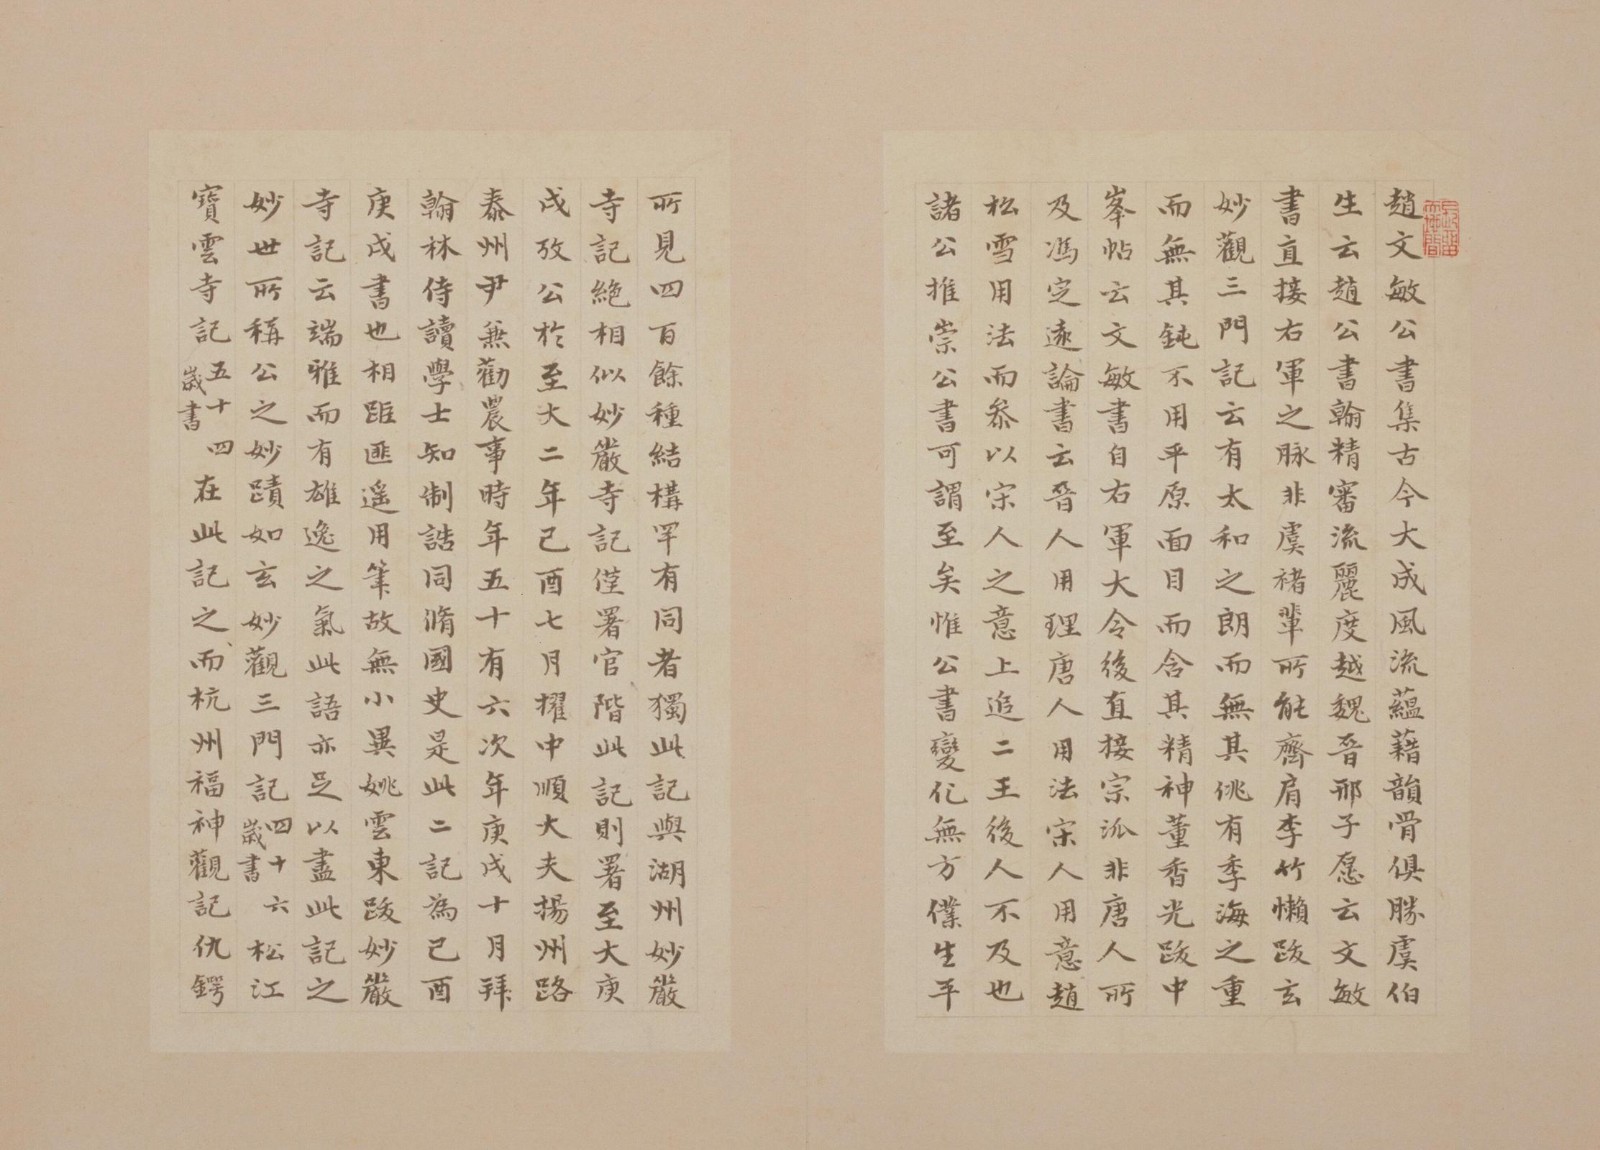 趙文敏公書集古今大成風流蘊藉韻骨俱勝虞伯
生云趙公書翰精審流麗度越魏晉邢子愿云文敏
書直接右軍之脉非虞褚輩所能齊肩李竹懶跋玄
妙觀三門記云有太和之朗而無其佻有季海之重
而無其鈍不用平原面目而含其精神董香光跋中
峯帖云文敏書自右軍大令後直接宗派非唐人所
及馮定遠論書云晉人用理唐人用法宋人用意趙
松雪用法而叅以宋人之意上追二王後人不及也
諸公推崇公書可謂至矣惟公書變化無方僕生平
所見四百餘種結構罕有同者獨此記與湖州妙嚴
寺記絶相似妙嚴寺記僅署官階此記則署至大庚
戌攷公於至大二年己酉七月擢中順大夫揚州路
泰州尹兼勸農事時年五十有六次年庚戌十月拜
翰林侍讀學士知制誥同脩國史是此二記為己酉
庚戌書也相距匪遥用筆故無小異姚雲東跋妙嚴
寺記云端雅而有雄逸之氣此語亦足以盡此記之
妙世所稱公之妙蹟如玄妙觀三門記四十六歲書松江
寶雲寺記五十四歲書在此記之前杭州福神觀記仇鍔